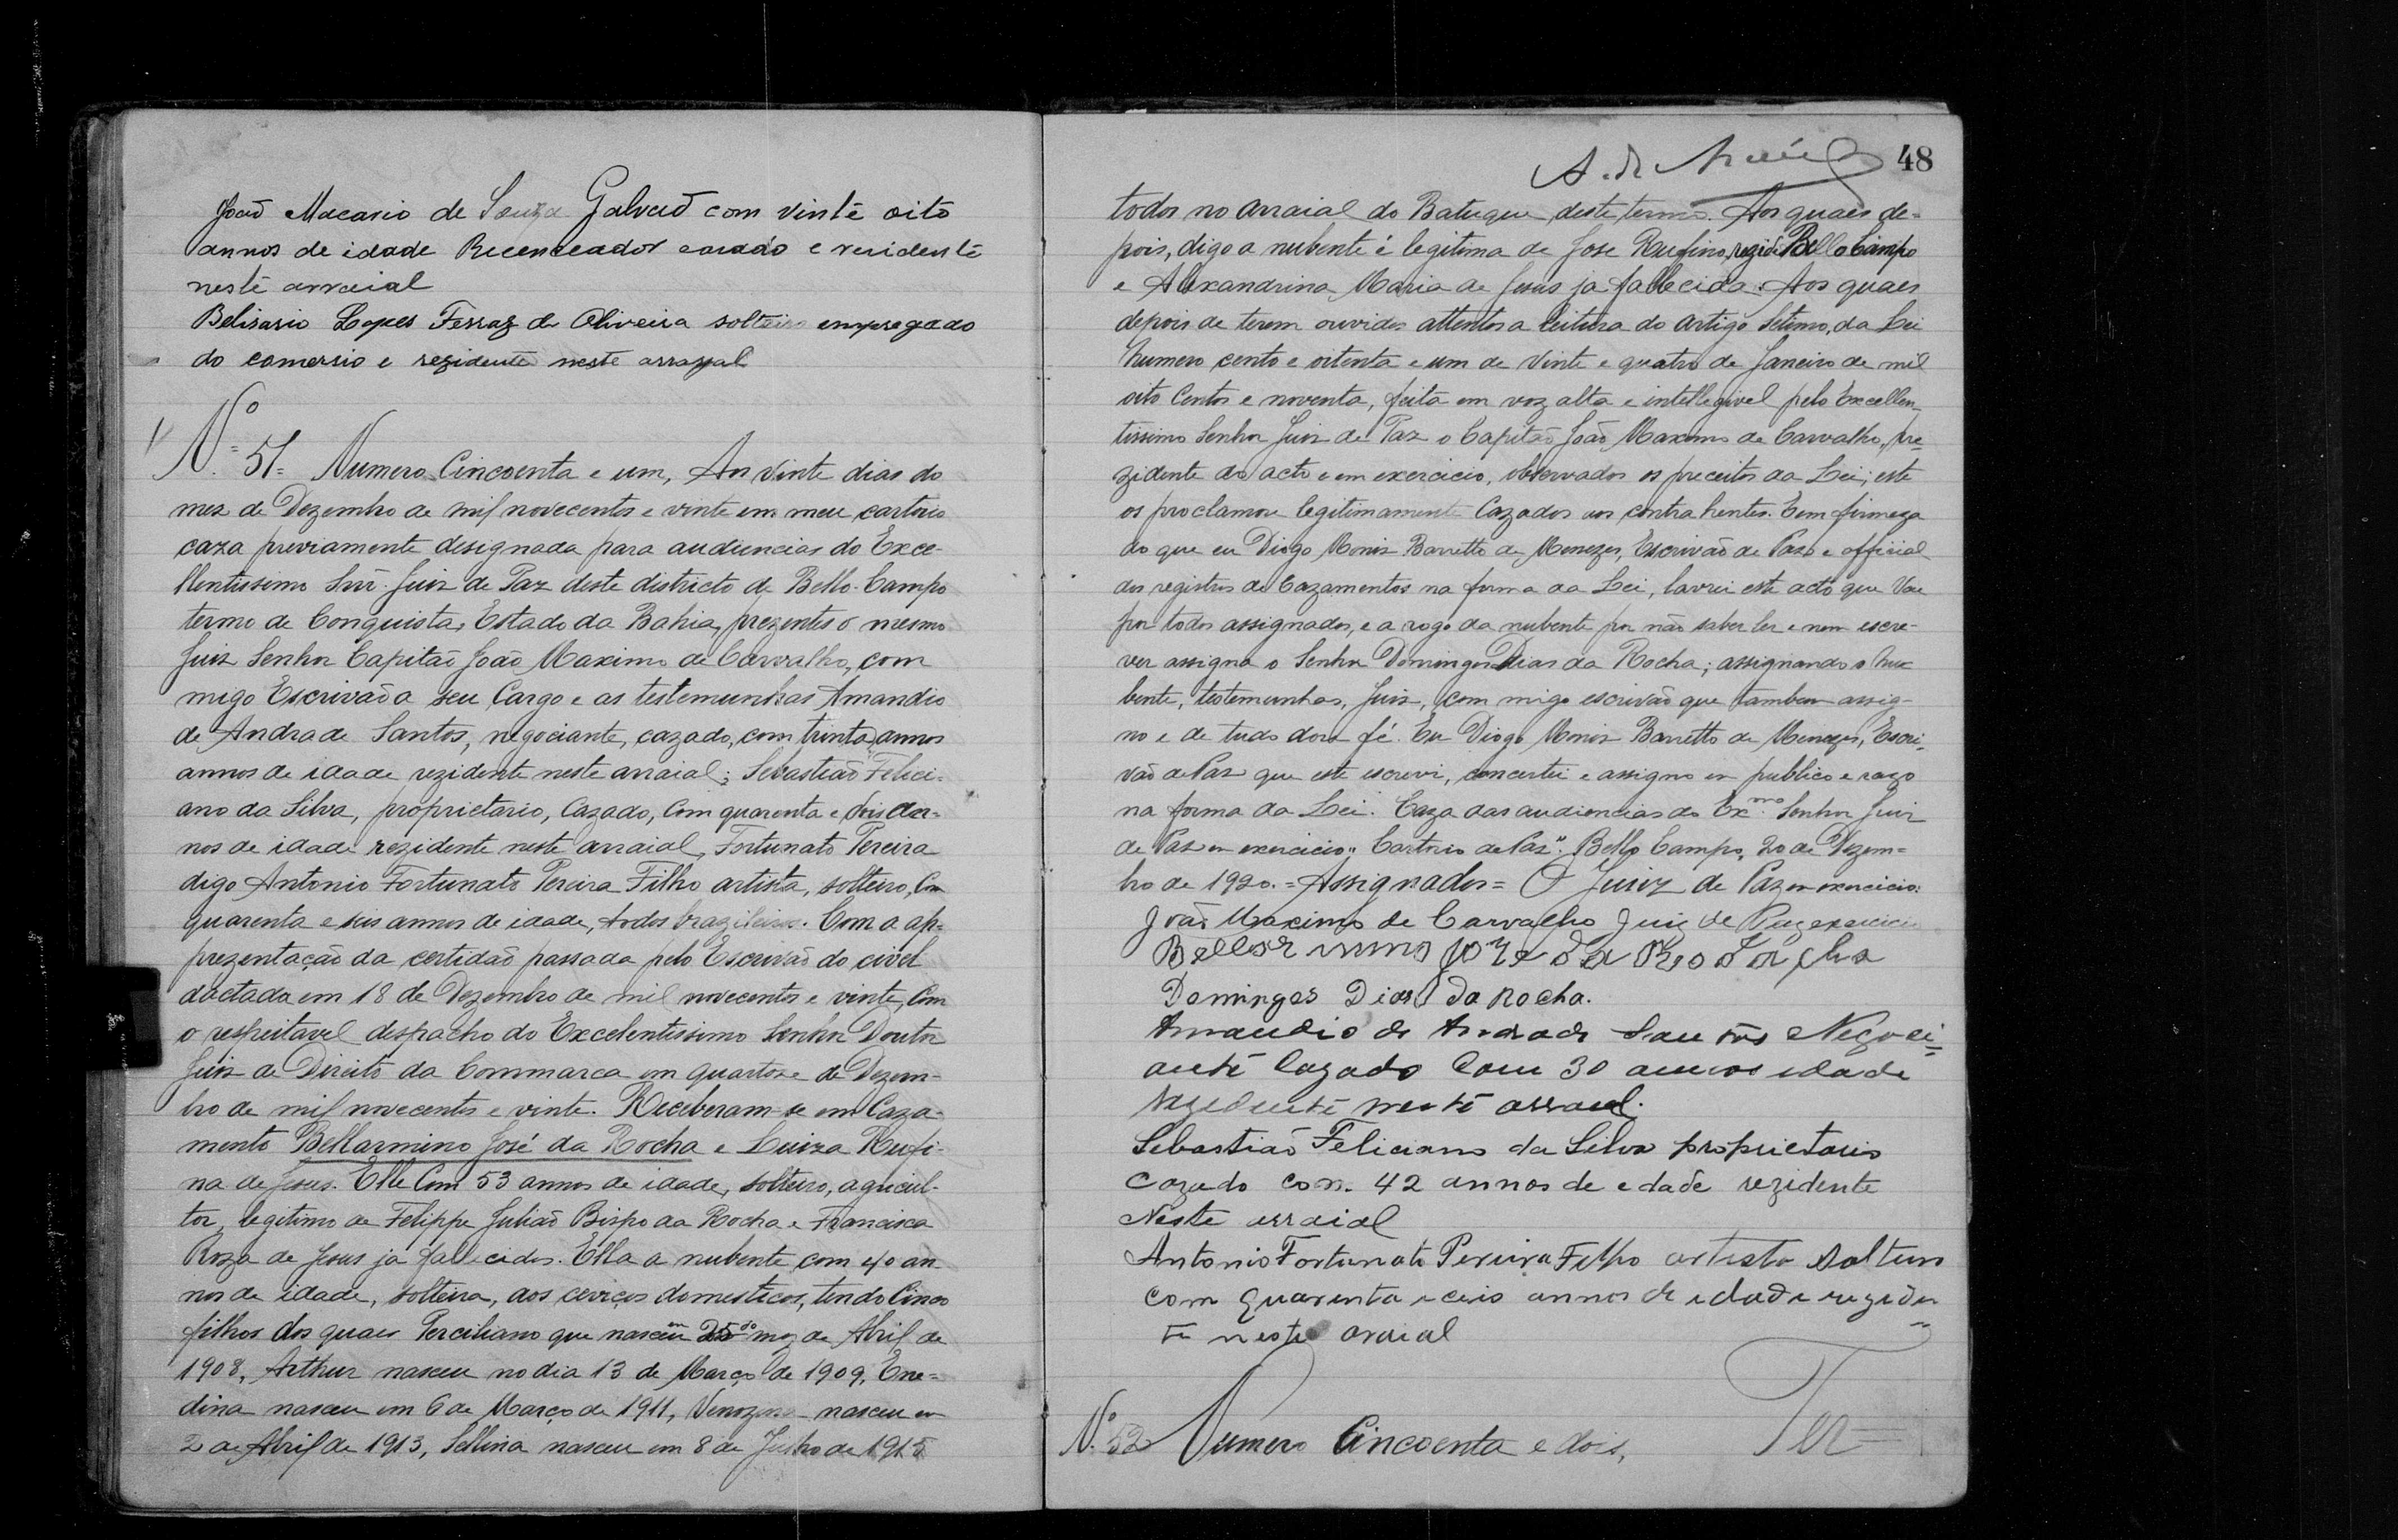 João Macario de Souza Galvaõ com vinte oito
annos de idade Recenceador casado e residente
neste arraial
Belisario Lopes Ferraz de Oliveira solteiro empregado
do comersio e rezidente neste arrayal
Nº 51= Numero Cincoenta e um, Aos vinte dias do
mez de Dezembro de mil novecentos e vinte em meu cartorio
caza previamente designada para audiencias do Exce-
llentissimo Snr. Juiz de Paz deste districto de Bello-Campo
termo de Conquista, Estado da Bahia, prezentes o mesmo
Juiz Senhor Capitão João Maximo de Carvalho, com
migo Escrivão a seu Cargo e as testemunhas Amandio
de Andrade Santos, negociante, cazado, com trinta annos
annos de idade rezidente neste arraial; Sebastião Felici-
ano da Silva, proprietario, Cazado, Com quarenta e dois an-
nos de idade rezidente neste arraial, Fortunato Pereira
digo Antonio Fortunato Pereira Filho artista, solteiro, Com
quarenta e seis annos de idade, todos brazileiros. Com a ap-
prezentação da certidão passada pelo Escrivão do civel
dactada em 18 de Dezembro de mil novecentos e vinte, Com
o respeitavel despacho do Excelentissimo Senhor Doutor
Juiz de Direito da Commarca em quartoze de Dezem-
bro de mil novecentos e vinte. Receberam-se em Caza-
mento Bellarmino José da Rocha e Luiza Rufi-
na de Jesus. Elle Com 53 annos de idade, solteiro, agricul-
tor, legitimo de Felippe Julião Bispo da Rocha e Francisca
Roza de Jesus ja falecidos. Ella a nubente com 40 an-
nos de idade, solteira, aos cerviços domesticos, tendo Cinco
filhos dos quaes Perciliano que nasceu em 25 do mez de Abril de
1908, Arthur nasceu no dia 13 de Março de 1909, Ene-
dina nasceu em 6 de Março de 1911, nasceu em
2 de Abril de 1913, Sellina nasceu em 8 de Julho de 1915
48
todos no arraial do Batuque deste termo. Aos quaes de-
pois, digo a nubente é legitima de Jose Rufino, rezide Bello Campo
e Alexandrina Maria de Jesus ja fallecida. Aos quaes
depois de terem ouvidos attentos a leitura do artigo setimo, da Lei
numero cento e oitenta e um de Vinte e quatro de Janeiro de mil
oito Centos e noventa, feita em voz alta e intellegivel pelo Excellen-
tissimo Senhor Juiz de Paz o Capitão João Maximo de Carvalho, pre-
zidente do acto e em exercicio, observados os preceitos da Lei; este
os proclamou legitimamente Cazados aos contrahentes. E em firmeza
do que eu Diogo Moniz Barretto de Menezes, Escrivão de Paz e official
dos registros de Cazamentos na forma da Lei, lavrei este acto que Vae
por todos assignados, e a rogo da nubente por não saber ler e nem escre-
ver assigna o Senhor Domingos Dias da Rocha; assignando o nu-
bente, testemunhas, Juiz, com migo escrivão que tambem assig-
no e de tudo dou fé. Eu Diogo Moniz Barretto de Menezes, Escri-
vão de Paz que este escrevi, concertei e assigno em publico e razo
na forma da Lei. Caza das audiencias do Exmo. Senhor Juiz
de Paz em exercicio, Cartorio de Paz. Bello Campo, 20 de Dezem=
bro de 1920.=Assignados= O Juiz de Paz em exercicio:
João Maximo de Carvalho Juiz de Paz exercicio
Bellarmino Joze da Rocha
Domingos Dias da Rocha.
Amandio de Andrade Santos Negoci-
ante Cazado Com 30 annos idade
rezidente neste arraial.
Sebastião Feliciano da Silva proprietario
Cazado com 42 annos de edade rezidente
Neste arraial
Antonio Fortunato Pereira Filho artista Solteiro
com quarenta e ceis annos de edade reziden
te neste araial
Nº 52 Numero Cincoenta e dois,